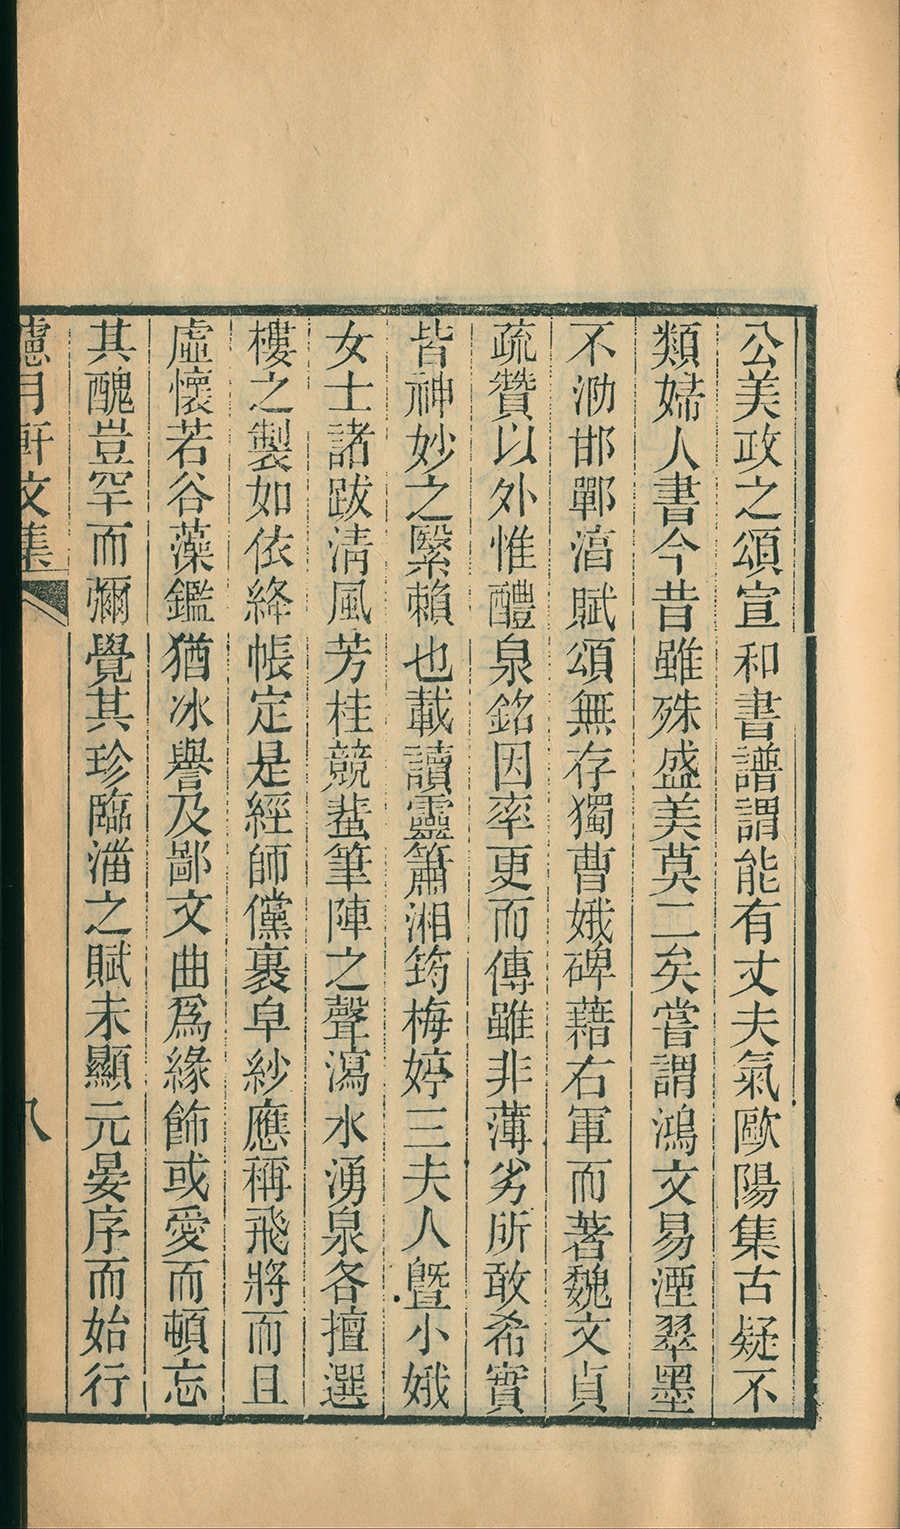 公美政之頌宣和書譜謂能有丈夫氣歐陽集古疑不
類婦人書今昔雖殊盛美莫二矣嘗謂鴻文易湮翠墨
不泐邯鄲湻賦頌無存獨曹娥碑藉右軍而著魏文貞
疏贊以外惟醴泉銘因率更而傳雖非薄劣所敢希實
皆神妙之繄賴也載讀靈簫湘筠梅婷三夫人曁小娥
女士諸跋淸風芳桂競蜚筆陣之聲瀉水湧泉各擅選
樓之製如依絳帳定是經師儻裹皁紗應稱飛將而且
虛懷若谷藻鑑猶冰譽及鄙文曲爲緣飾或愛而頓忘
其醜豈罕而彌覺其珍臨湽之賦未顯元晏序而始行
慮月軒文集
八